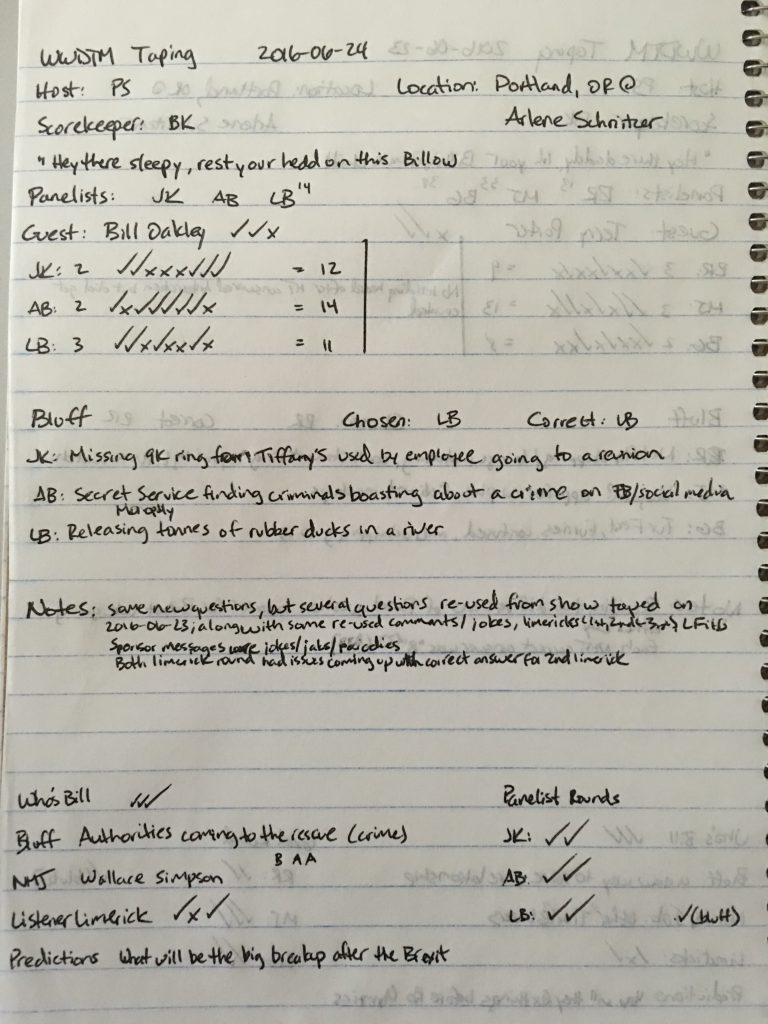 WWDTM Taping 2016-06-24
Host: PS Location: Portland, OR @
Scorekeeper: BK Arlene Schnitzer
"Hey there sleepy, rest your hedd on this Billow
Panelists: JK AB LB '14
Guest: Bill Oakley ✓✓x
JK: 2 ✓✓xxx✓✓✓ = 12
AB: 2 ✓x✓✓✓✓✓x = 14
LB: 3 ✓✓x✓xx✓x = 11
Bluff Chosen: LB Correct: LB
JK: Missing 9K ring from Tiffany's used by employee going to a reunion
AB: Secret Service finding criminals boasting about a crime on FB/social media
LB: Releasing tonnes of rubber ducks in a river
Notes: some new questions, but several questions re-used from show taped on
2016-06-23; along with some re-used comments/jokes, limericks (1st, 2nd & 3rd), LFitB
Sponsor messages were jokes/jabs/parodies
Both limerick round had issues coming up with correct answer for 2nd limerick
Who's Bill ✓✓✓ Panelist Rounds
Bluff Authorities coming to the rescue (crimes) JK: ✓✓
B A A
NMJ Wallace Simpson AB: ✓✓
Listener Limerick ✓x✓ LB: ✓✓ ✓(bluff)
Predictions What will be the big breakup after the Brexit